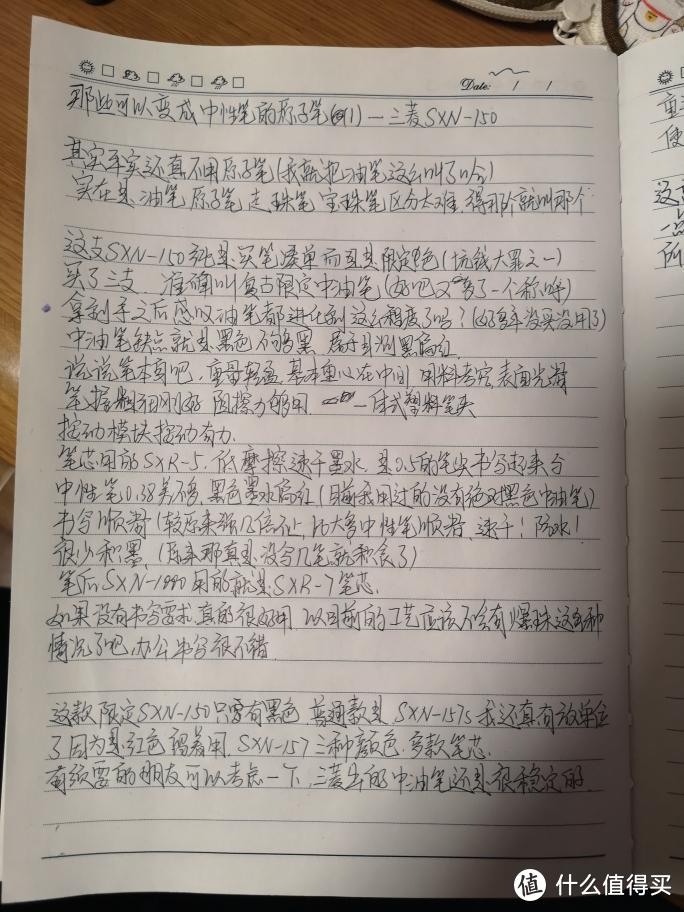 Date: / /
那些可以变成中性笔的原子笔(1)—三菱SXN-150
其实平实还真不用原子笔(我就把油笔这么叫了哈)
实在是油笔 原子笔 走珠笔 宝珠笔区分太难 得那个就叫那个
这支SXN-150纯是买笔凑单而且是限定色(坑钱大罪之一)
买了三支 准确叫复古限定中油笔(好吧又多了一个称呼)
拿到手之后感叹油笔都进化到这么程度了吗?(好多年没买没用了)
中油笔缺点就是黑色不够黑 属于目测黑偏红
说说笔本身吧,重量轻盈 基本重心在中间 用料考究 表面光滑
笔握粗细刚好 函擦力够用 一体式塑料笔夹
按动模块按动有力
笔芯用的SXR-5. 低摩擦速干墨水 是0.5的笔尖书写起来与
中性笔0.38差不多 黑色墨水偏红(目前我用过的没有绝对黑色中油笔)
书写顺滑(较原来强几倍不止,比大多中性笔顺滑 速干!防水!
很少积墨 (原来那真是没写几笔就积袋了)
笔后SXN-1000用的就是SXR-7笔芯.
如果没有书写需求 真的很好用 以目前的工艺应该不会有爆珠这种
情况了吧 办公书写很不错
这款限定SXN-150只要有黑色 普通款是SXN-157S 我还真有放单位
了因为是红色 留着用 SXN-157三种颜色 多款笔芯
有须要的朋友可以考虑一下 三菱的中油笔还是很稳定的
值 什么值得买